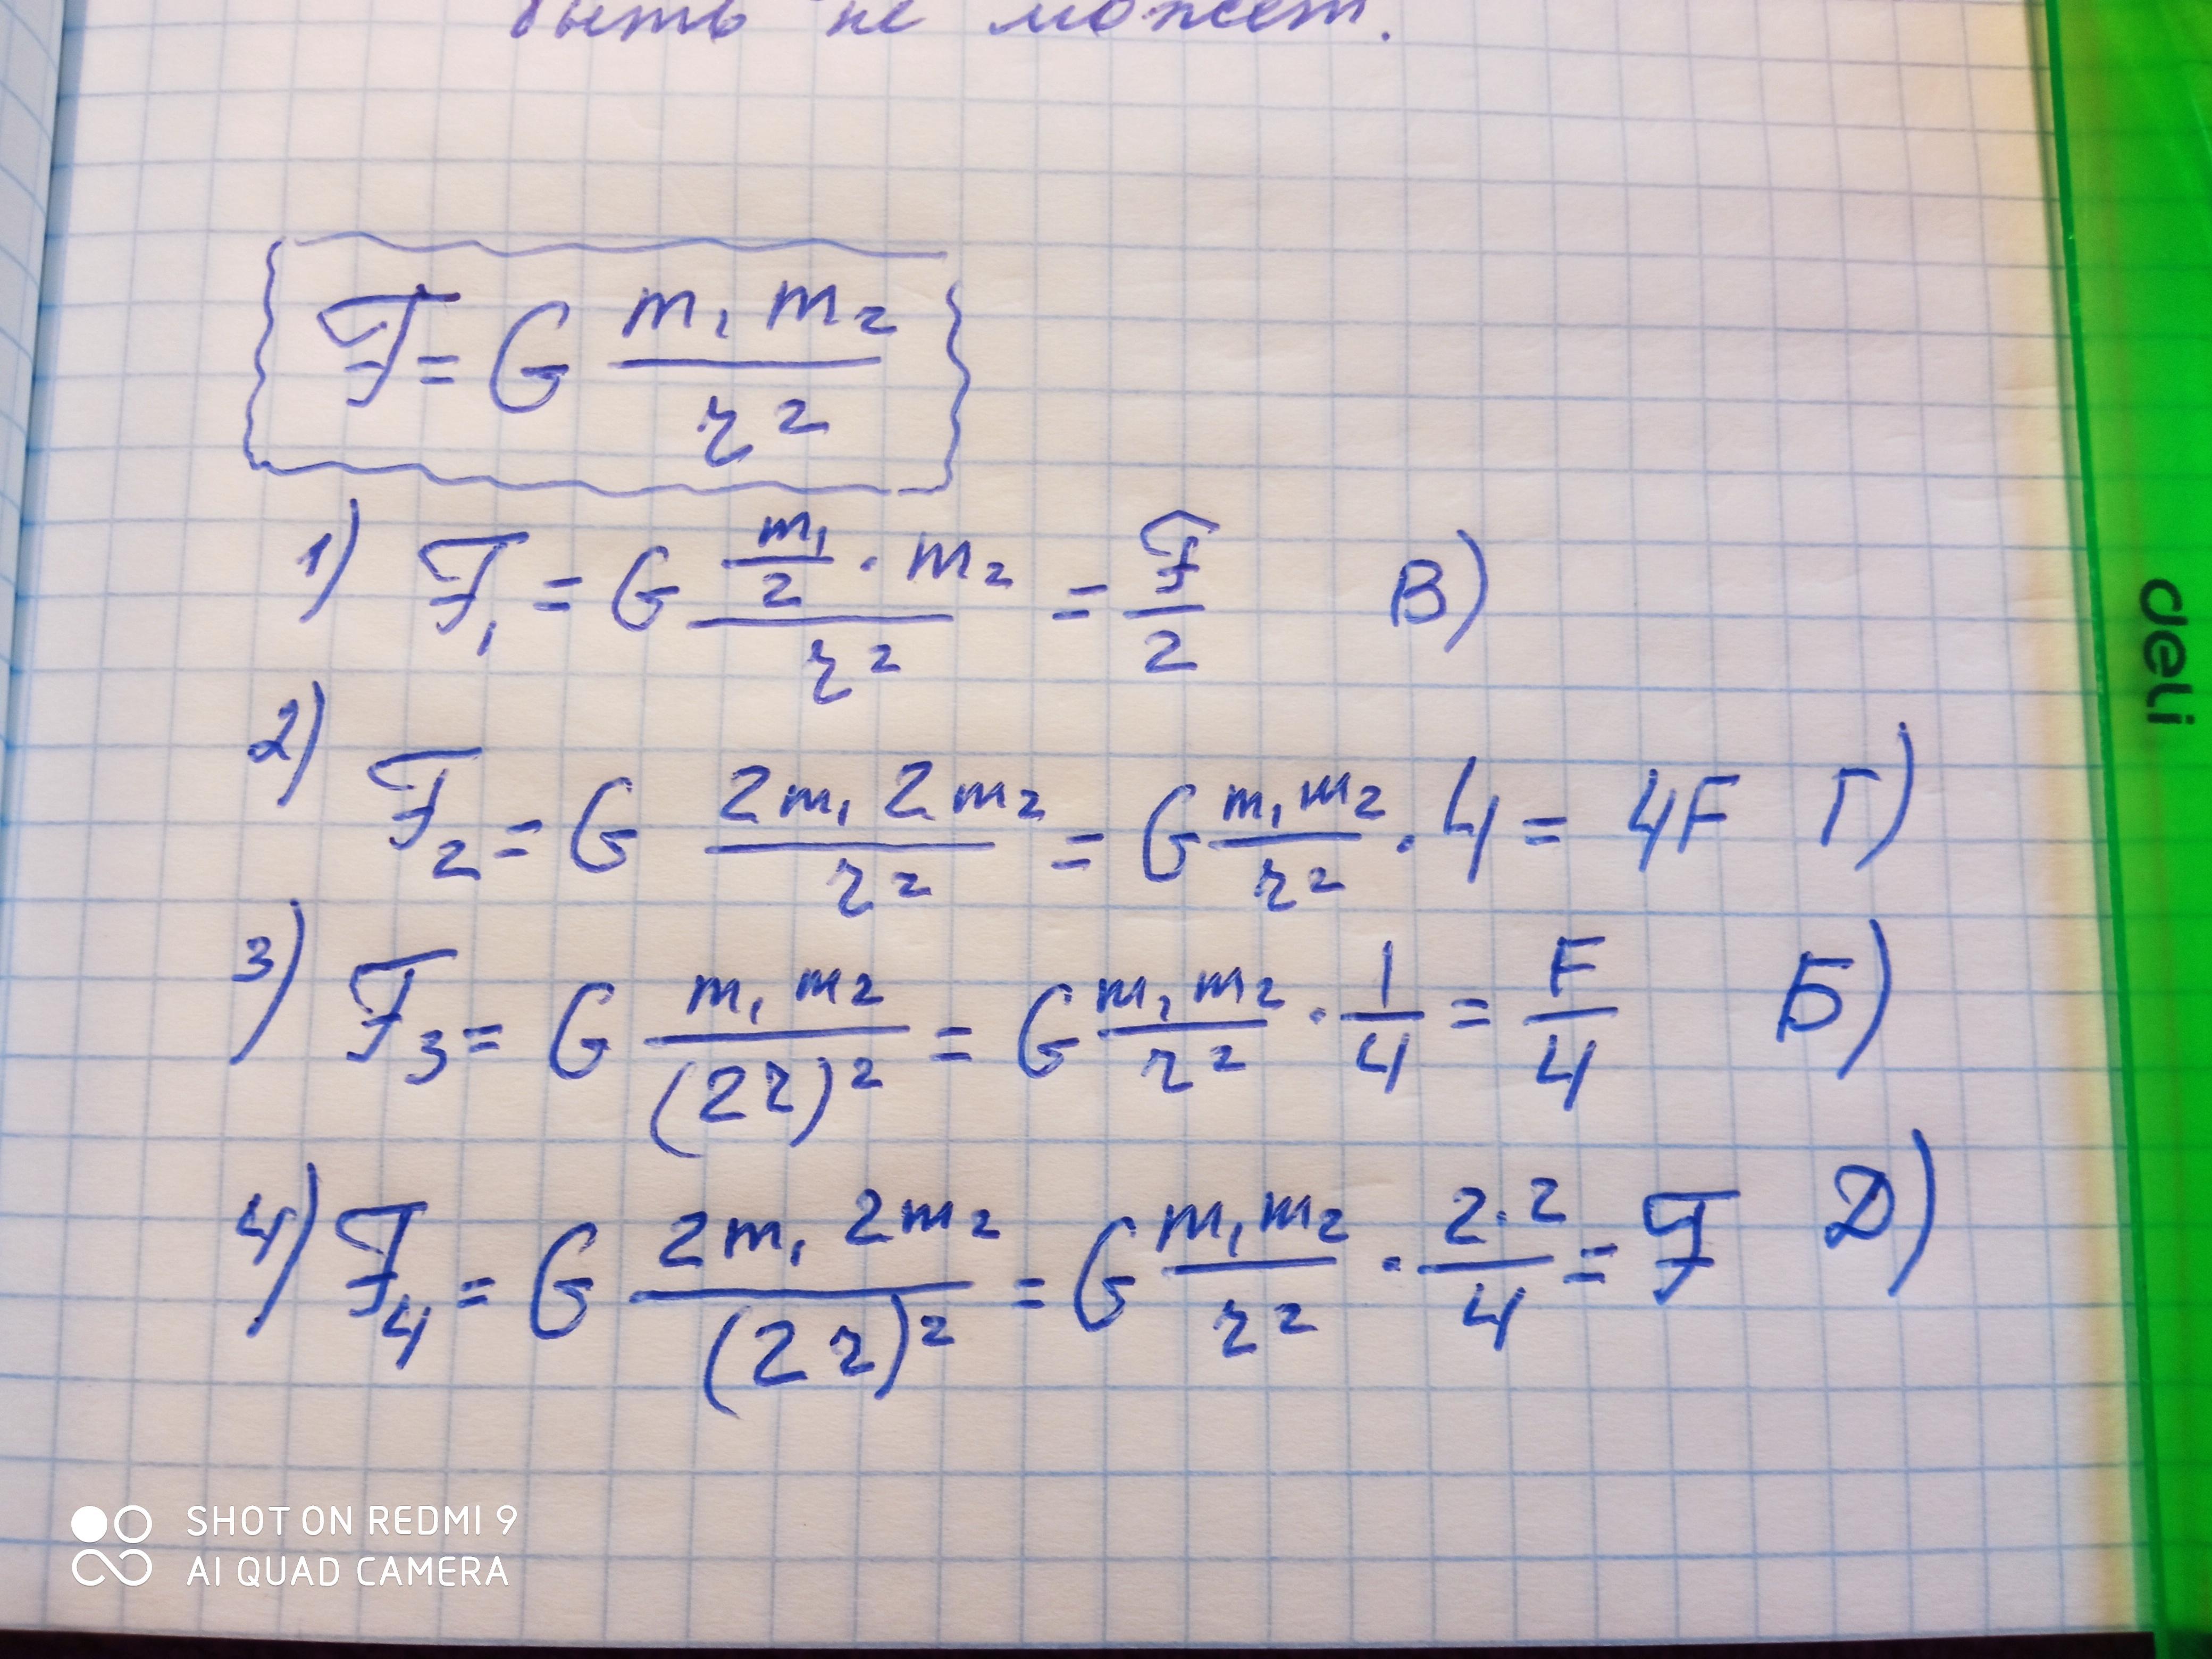 быть не может.
F = G m₁ m₂ / r²
1) F₁ = G (m₁/2 · m₂) / r² = F/2 В)
2) F₂ = G 2m₁ 2m₂ / r² = G m₁m₂ / r² · 4 = 4F Г)
3) F₃ = G m₁ m₂ / (2r)² = G m₁ m₂ / r² · 1/4 = F/4 Б)
4) F₄ = G 2m₁ 2m₂ / (2r)² = G m₁m₂ / r² · 2·2/4 = F Д)
deli
SHOT ON REDMI 9
AI QUAD CAMERA